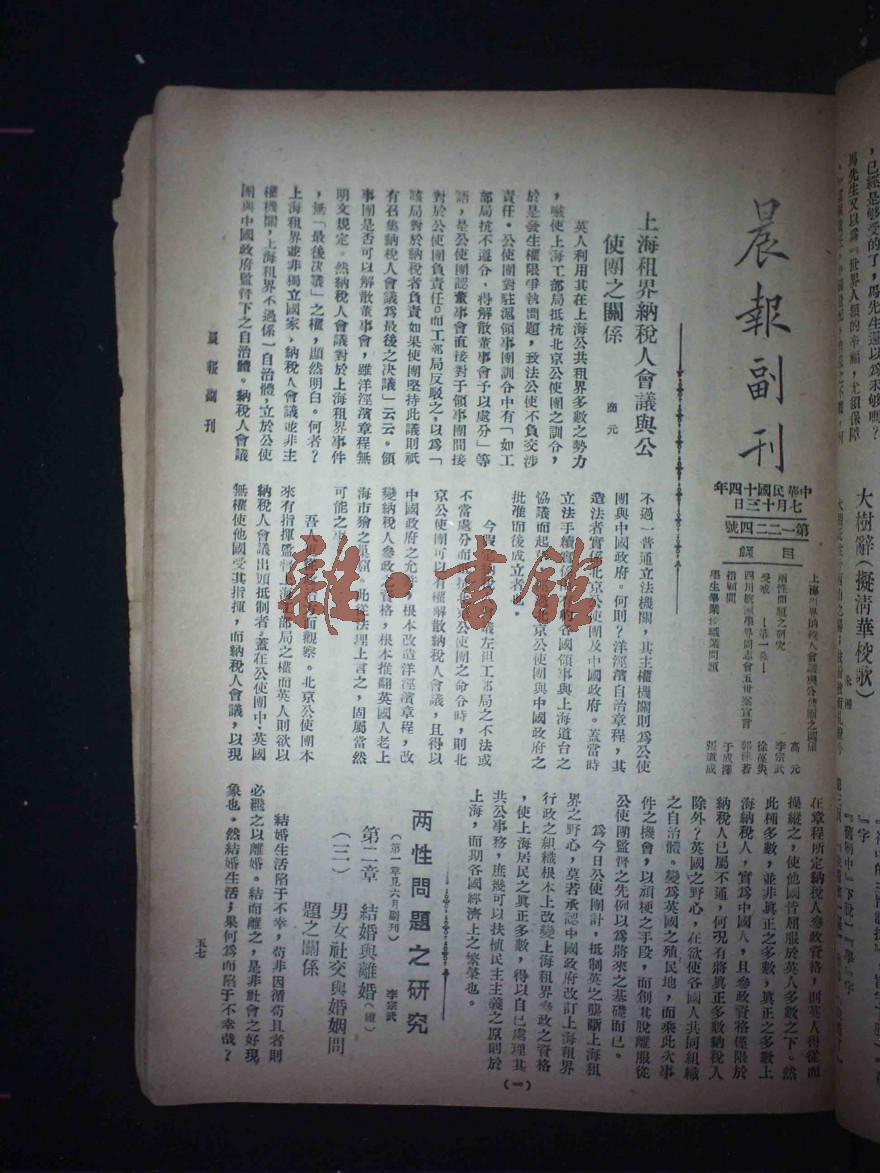 晨報副刊
中華民國十四年
七月十三日
第一二二四號
目錄
上海租界納稅人會議與公使團之關係
高元
兩性問題之研究
李宗武
學生畢業後職業問題
上海租界納稅人會議與公
使團之關係
高元
英人利用其在上海公共租界多數之勢力
，嗾使上海工部局抵抗北京公使團之訓令，
於是發生權限爭執問題，致法公使不負交涉
責任。公使團對駐滬領事團訓令中有「如工
部局抗不遵令，得解散董事會予以處分」等
語，是公使團認董事會直接對于領事團間接
對於公使團負責任。而工部局反駁之，以爲「
該局對於納稅者負責如果使團堅持此議則祇
有召集納稅人會議爲最後之決議」云云。領
事團是否可以解散董事會，雖洋涇濱章程無
明文規定。然納稅人會議對於上海租界事件
，無「最後決議」之權，顯然明白。何者？
上海租界並非獨立國家、納稅人會議並非主
權機關，上海租界不過係一自治體，立於公使
團與中國政府監督下之自治體。納稅人會議
不過一普通立法機關，其主權機關則爲公使
團與中國政府。何則？洋涇濱自治章程，其
造法者實係北京公使團及中國政府。蓋當時
立法手續實係各國領事與上海道台之
協議而起北京公使團與中國政府之
批准而後成立者也。
今假定議左袒工部局之不法或
不當處分而公使團之命令時，則北
京公使團可以有權解散納稅人會議，且得以
中國政府之允許，根本改造洋涇濱章程，改
變納稅人參政資格，根本推翻英國人老上
海市獪之此從法理上言之，固屬當然
可能之事
吾人方面觀察。北京公使團本
來有指揮監督上海工部局之權而英人則欲以
納稅人會議出頭抵制者。蓋在公使團中，英國
無權使他國受其指揮，而納稅人會議，以現
在章程所定納稅人參政資格，則英人得從而
操縱之，使他國皆屈服於英人多數之下。然
此種多數，並非眞正之多數，眞正之多數上
海納稅人，實爲中國人，且參政資格僅限於
納稅人已屬不通，何况有將眞正多數納稅人
除外？英國之野心，在欲使各國人共同組織
之自治體。變爲英國之殖民地，而乘此次事
件之機會，以頑梗之手段，而創其脫離服從
公使團監督之先例以爲將來之基礎而已。
爲今日公使團計，抵制英之壟斷上海租
界之野心，莫若承認中國政府改訂上海租界
行政之組織根本上改變上海租界參政之資格
，使上海居民之眞正多數，得以自己處理其
共公事務，庶幾可以扶植民主主義之原則於
上海，而期各國經濟上之繁榮也。
两性問題之研究
（第一章見六月副刊）
李宗武
第二章 結婚與離婚（續）
（三） 男女社交與婚姻問
題之關係
結婚生活陷于不幸，苟非因循苟且者則
必繼之以離婚。結而離之，是非社會之好現
象也。然結婚生活，果何爲而陷于不幸哉？
晨報副刊
五七
（一）
雜·書館
大樹辭（擬清華校歌）
，已經是够受的了，馬先生還以爲未够嗎？
馬先生又以爲『世界人類的幸福，尤須保障